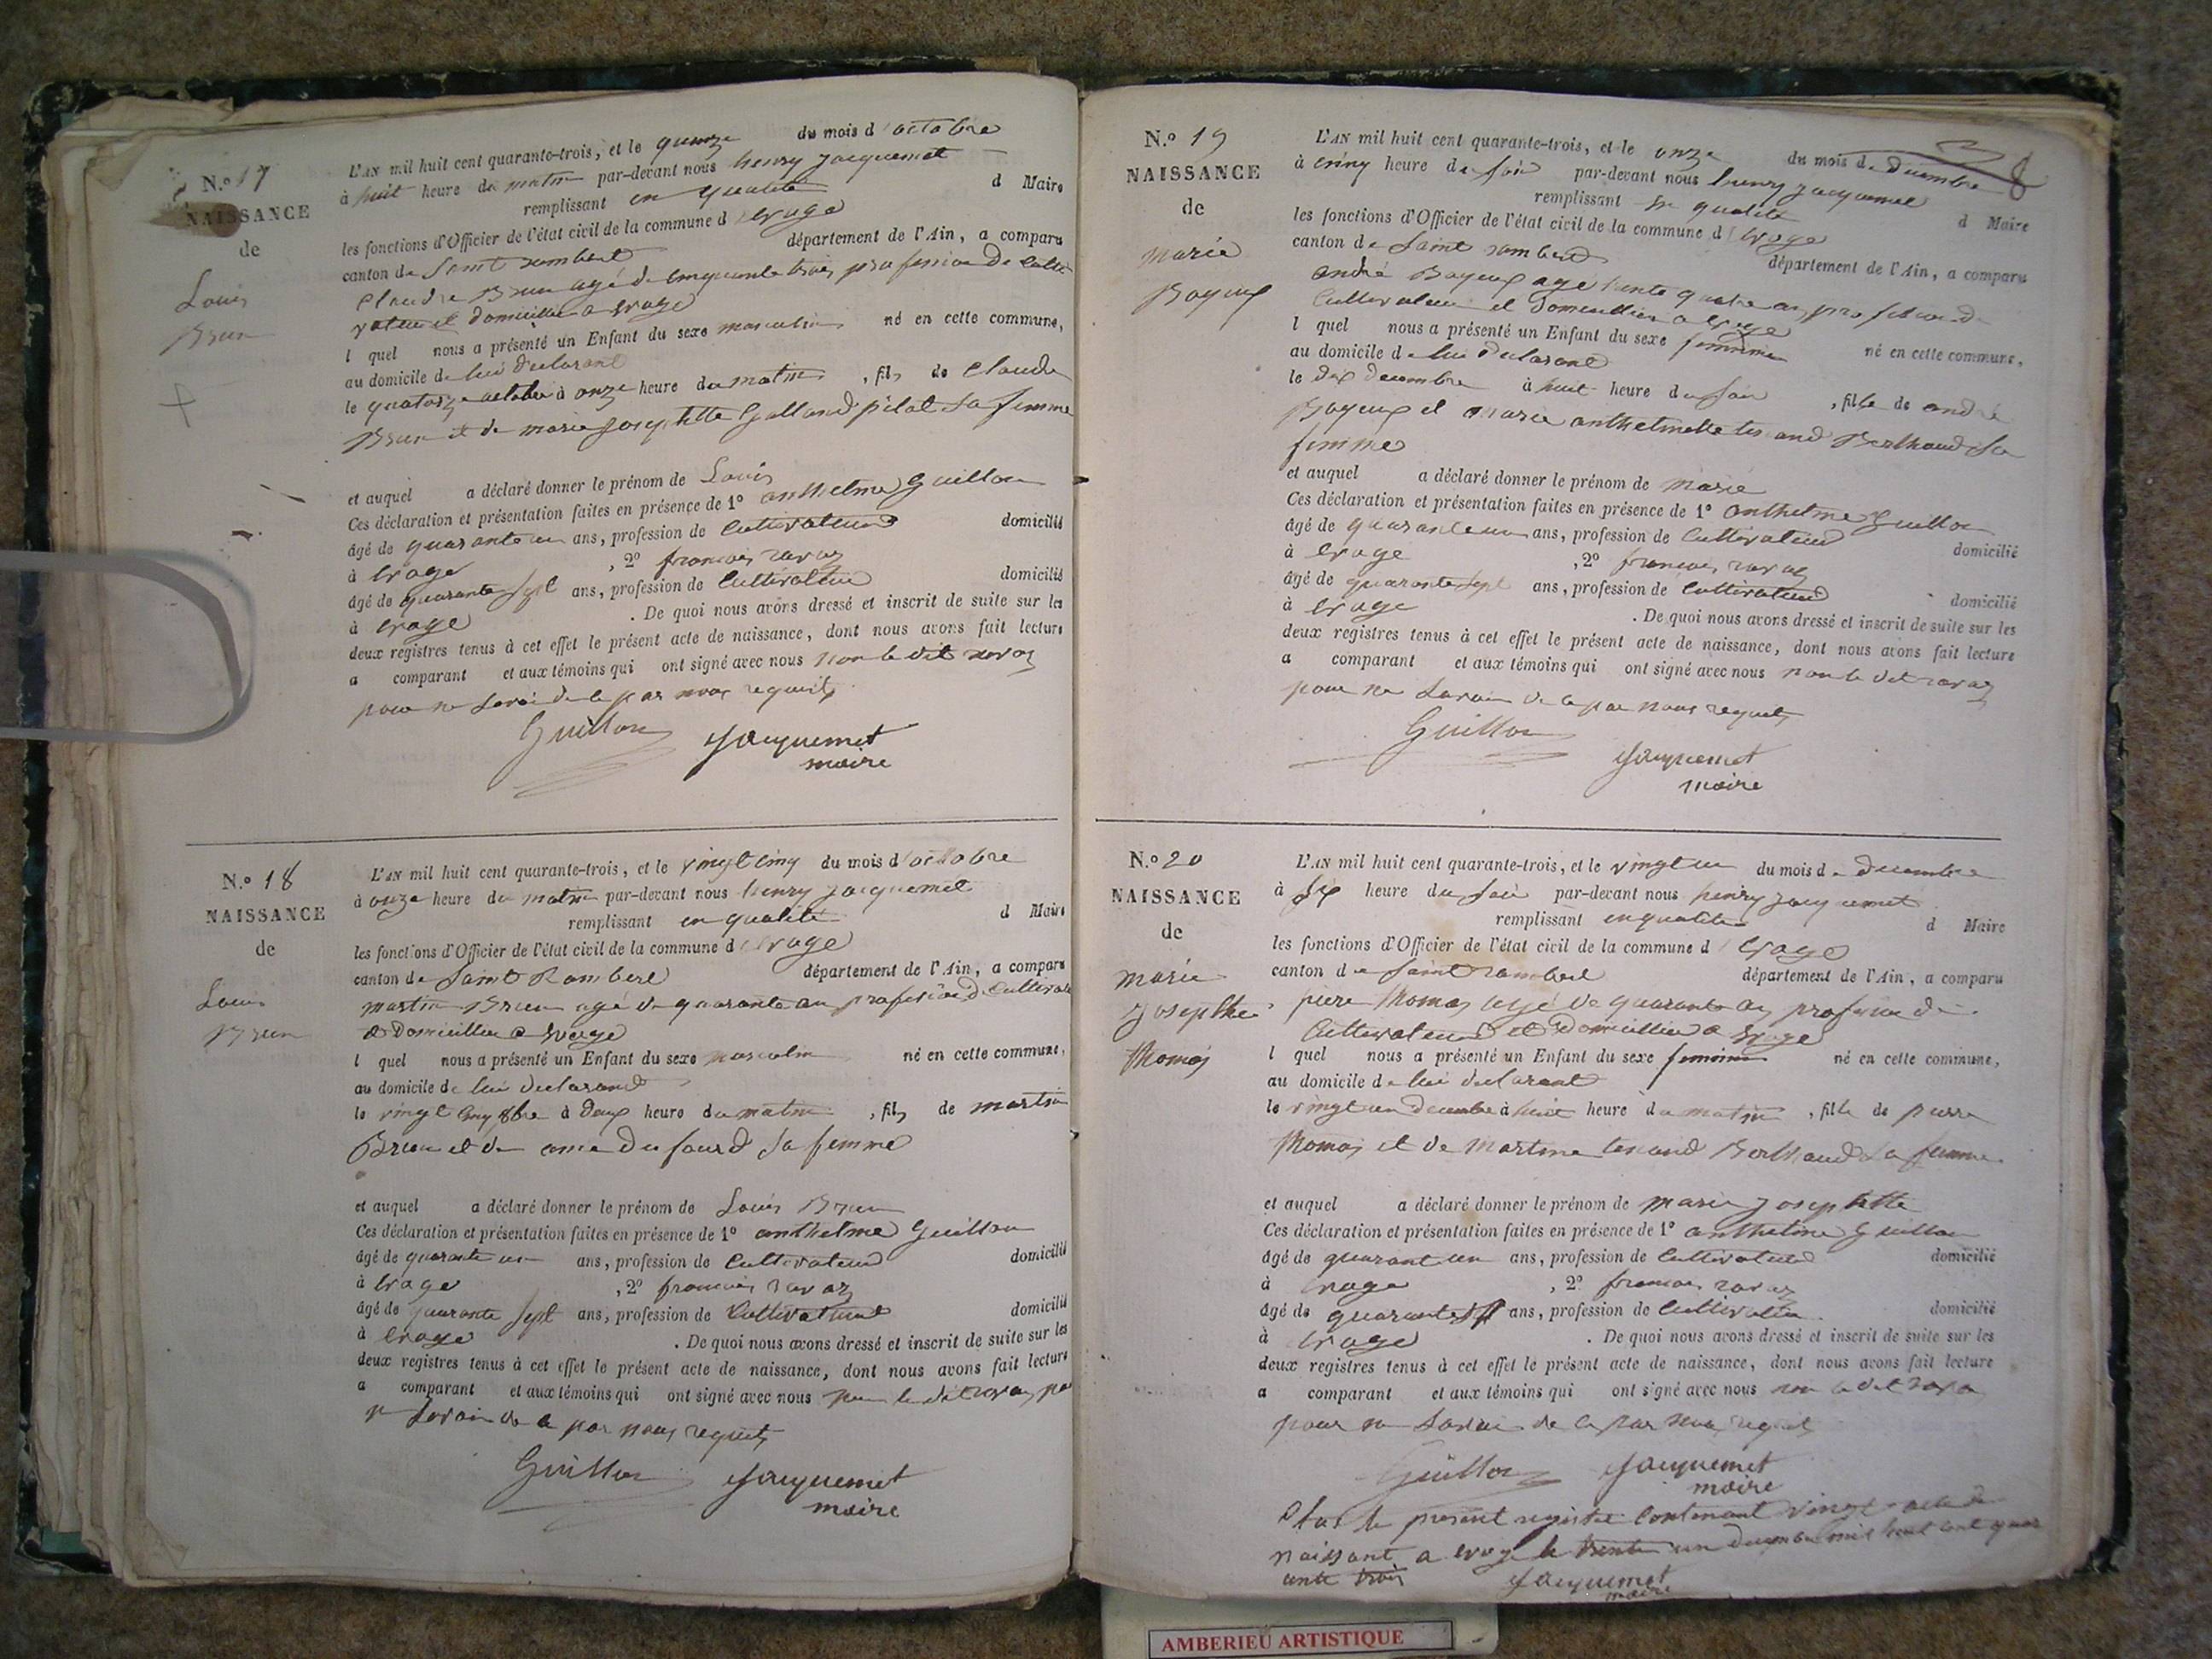 N.º 17
NAISSANCE
de
Louis
Brun
L'AN mil huit cent quarante-trois, et le quinze du mois d'octobre
à huit heure du matin par-devant nous henry jacquemet
remplissant en qualité d Maire
les fonctions d'Officier de l'état civil de la commune d'Evoge
canton de Saint rambert département de l'Ain, a comparu
Claude Brun agé de cinquante trois profession de Culti
vateur et domicillié a Evoge
l quel nous a présenté un Enfant du sexe masculin né en cette commune,
au domicile de lui déclarant
le quatorze octobre à onze heure du matin, fils de Claude
Brun et de marie josephette Galland pilat sa femme
et auquel a déclaré donner le prénom de Louis
Ces déclaration et présentation faites en présence de 1º anthelme Guillon
âgé de quarante un ans, profession de Cultivateur domicilié
à Evoge, 2º francois ravaz
âgé de quarante sept ans, profession de Cultivateur domicilié
à Evoge. De quoi nous avons dressé et inscrit de suite sur les
deux registres tenus à cet effet le présent acte de naissance, dont nous avons fait lecture
a comparant et aux témoins qui ont signé avec nous non le dit ravaz
pour ne savoir de ce par nous requis
Guillon Jacquemet
maire
N.º 18
NAISSANCE
de
Louis
Brun
L'AN mil huit cent quarante-trois, et le vingt cinq du mois d'octobre
à onze heure du matin par-devant nous henry jacquemet
remplissant en qualité d Maire
les fonctions d'Officier de l'état civil de la commune d'Evoge
canton de Saint Rambert département de l'Ain, a comparu
martin Brun agé de quarante an profession de Cultivateur
et domicillié a Evoge
l quel nous a présenté un Enfant du sexe masculin né en cette commune,
au domicile de lui déclarant
le vingt cinq 8bre à deux heure du matin, fils de martin
Brun et de du fourd sa femme
et auquel a déclaré donner le prénom de Louis Brun
Ces déclaration et présentation faites en présence de 1º anthelme Guillon
âgé de quarante un ans, profession de Cultivateur domicilié
à Evoge, 2º francois ravaz
âgé de quarante sept ans, profession de Cultivateur domicilié
à Evoge. De quoi nous avons dressé et inscrit de suite sur les
deux registres tenus à cet effet le présent acte de naissance, dont nous avons fait lecture
a comparant et aux témoins qui ont signé avec nous non le dit ravaz pour
ne savoir de ce par nous requis
Guillon Jacquemet
maire
8
N.º 19
NAISSANCE
de
marie
Boyeux
L'AN mil huit cent quarante-trois, et le onze du mois de décembre
à cinq heure du soir par-devant nous henry jacquemet
remplissant en qualité d Maire
les fonctions d'Officier de l'état civil de la commune d'Evoge
canton de Saint rambert département de l'Ain, a comparu
andré Boyeux agé trente quatre an profession de
Cultivateur et domicillié a Evoge
l quel nous a présenté un Enfant du sexe féminin né en cette commune,
au domicile de lui déclarant
le dix décembre à huit heure du soir, fille de andré
Boyeux et marie anthelmette tenand Berthaud sa
femme
et auquel a déclaré donner le prénom de marie
Ces déclaration et présentation faites en présence de 1º anthelme Guillon
âgé de quarante un ans, profession de Cultivateur domicilié
à Evoge, 2º francois ravaz
âgé de quarante sept ans, profession de Cultivateur domicilié
à Evoge. De quoi nous avons dressé et inscrit de suite sur les
deux registres tenus à cet effet le présent acte de naissance, dont nous avons fait lecture
a comparant et aux témoins qui ont signé avec nous non le dit ravaz
pour ne savoir de ce par nous requis
Guillon Jacquemet
maire
N.º 20
NAISSANCE
de
marie
Josephte
Thomas
L'AN mil huit cent quarante-trois, et le vingt un du mois de decembre
à six heure du soir par-devant nous henry jacquemet
remplissant en qualité d Maire
les fonctions d'Officier de l'état civil de la commune d'Evoge
canton de Saint rambert département de l'Ain, a comparu
pierre Thomas agé de quarante an profession de
Cultivateur et domicillié a Evoge
l quel nous a présenté un Enfant du sexe féminin né en cette commune,
au domicile de lui déclarant
le vingt un décembre à huit heure du matin, fille de pierre
Thomas et de martine tenand Berthaud sa femme
et auquel a déclaré donner le prénom de marie josephette
Ces déclaration et présentation faites en présence de 1º anthelme Guillon
âgé de quarante un ans, profession de Cultivateur domicilié
à Evoge, 2º francois ravaz
âgé de quarante sept ans, profession de Cultivateur domicilié
à Evoge. De quoi nous avons dressé et inscrit de suite sur les
deux registres tenus à cet effet le présent acte de naissance, dont nous avons fait lecture
a comparant et aux témoins qui ont signé avec nous non le dit ravaz
pour ne savoir de ce par nous requis
Guillon Jacquemet
maire
Clos le présent registre contenant vingt acte de
naissant a Evoge le trente un decembre mil huit cent quar
ante trois Jacquemet
maire
AMBERIEU ARTISTIQUE